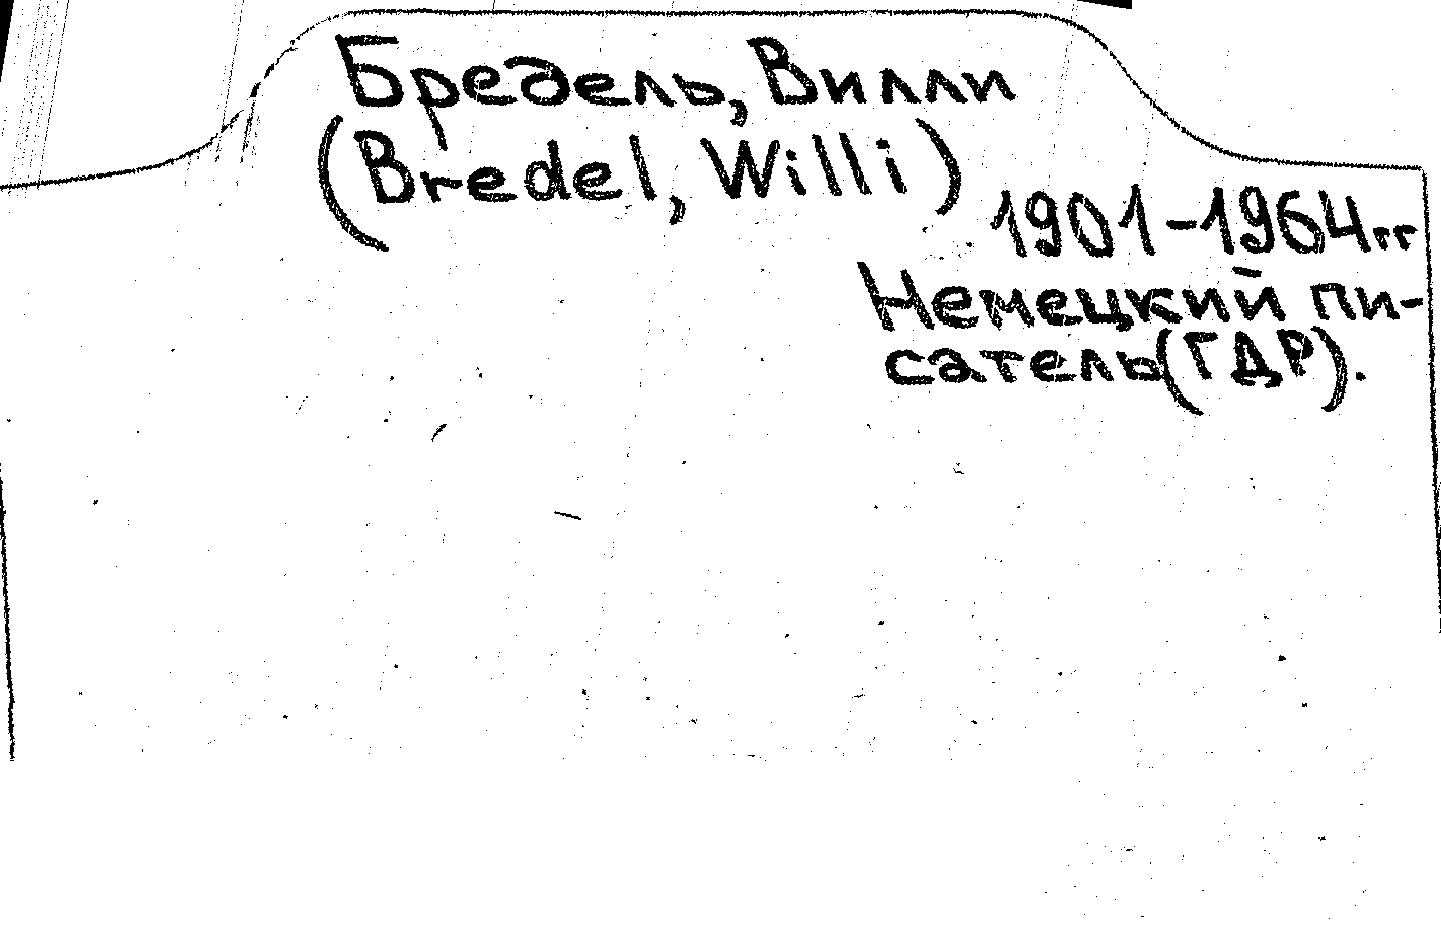 Бредель, Вилли
(Bredel, Willi)
1901-1964гг
Немецкий пи-
сатель(ГДР).